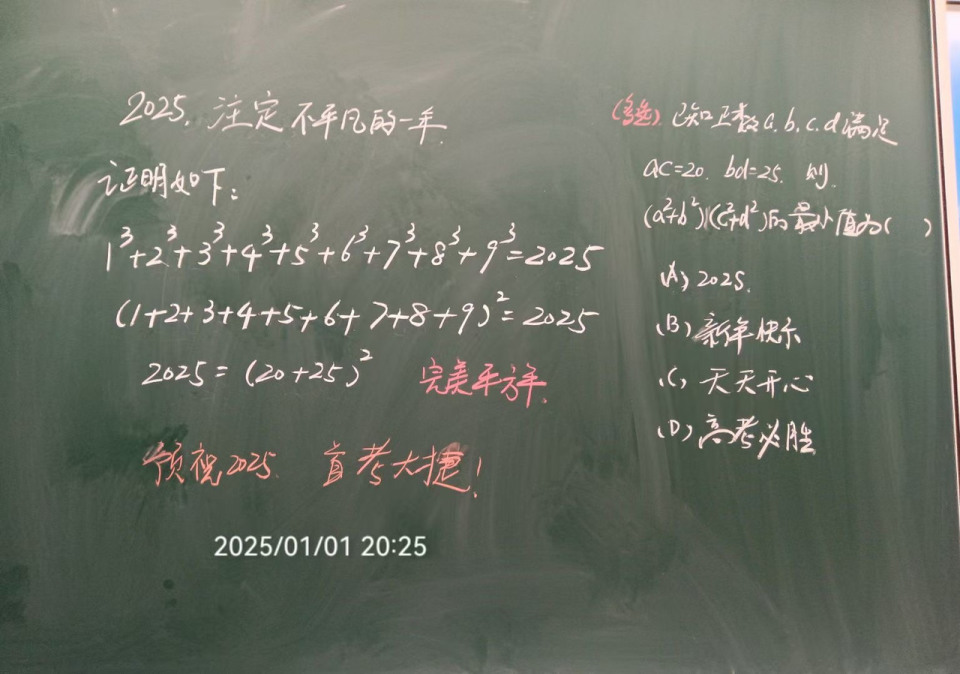 2025，注定不平凡的一年.
证明如下：
1³+2³+3³+4³+5³+6³+7³+8³+9³=2025
(1+2+3+4+5+6+7+8+9)²=2025
2025=(20+25)² 完美平方年.
预祝2025. 首考大捷！
2025/01/01 20:25
(多选). 已知正数a.b.c.d满足
ac=20. bd=25. 则.
(a²+b²)(c²+d²)的最小值为( )
(A) 2025.
(B) 新年快乐
(C) 天天开心
(D) 高考必胜